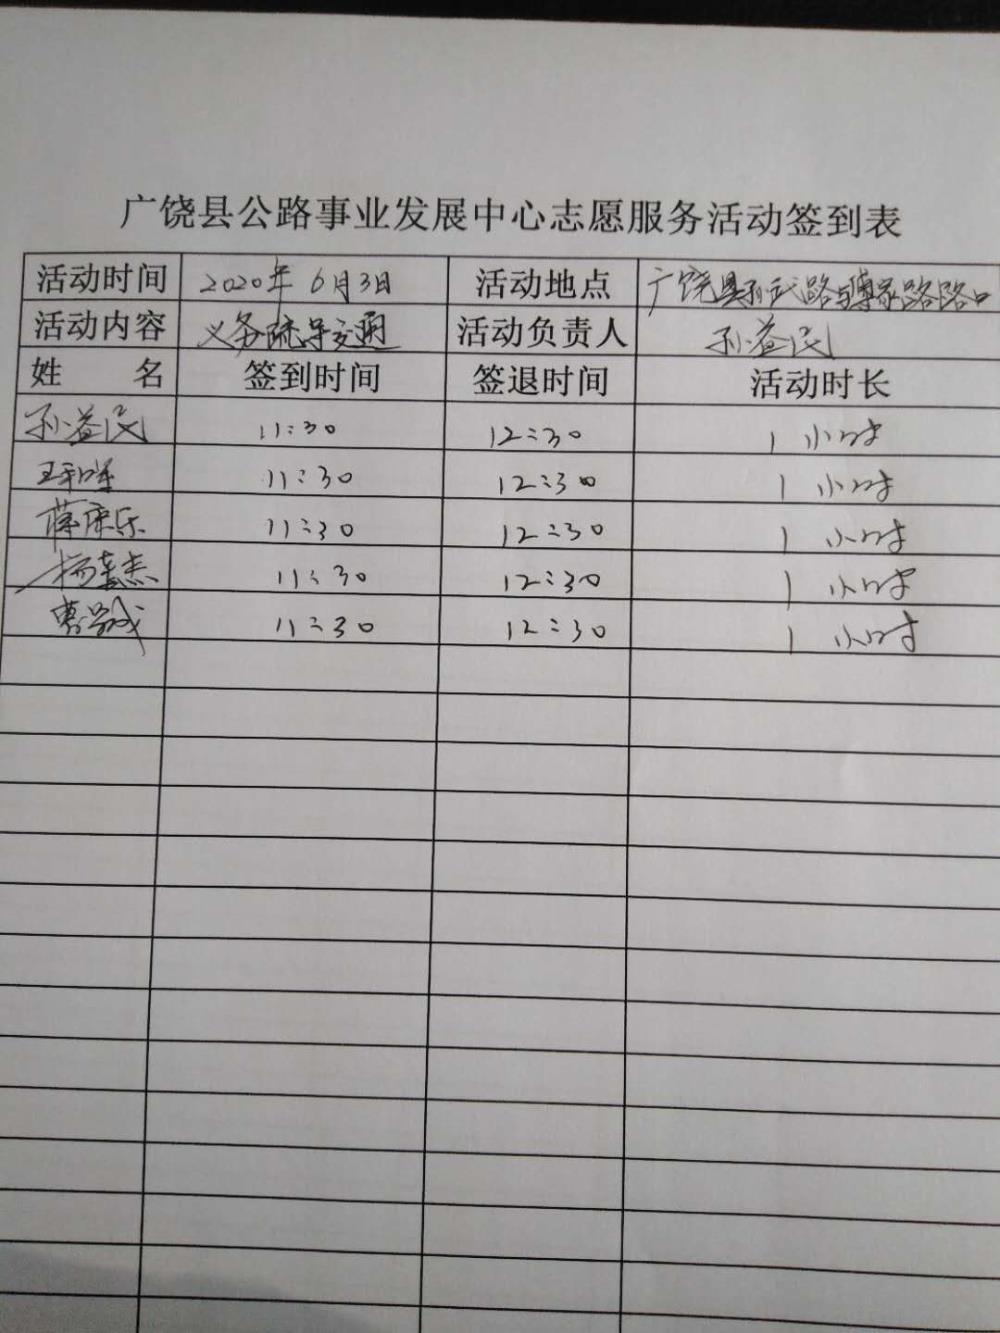 广饶县公路事业发展中心志愿服务活动签到表
活动时间 2020年6月3日 活动地点 广饶县孙武路与傅家路路口
活动内容 义务疏导交通 活动负责人 孙益民
姓 名 签到时间 签退时间 活动时长
孙益民 11:30 12:30 1 小时
11:30 12:30 1 小时
薛康乐 11:30 12:30 1 小时
11:30 12:30 1 小时
11:30 12:30 1 小时